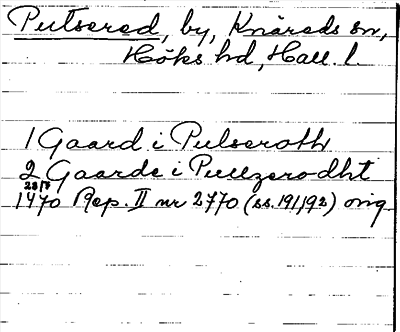 Putsered, by, Knäreds sn,
Höks hd, Hall. l.
1 Gaard i Pulseroth
2 Gaarde i Pullzerodht
23/8
1470 Rep. II nr 2770 (ss. 191, 192) orig